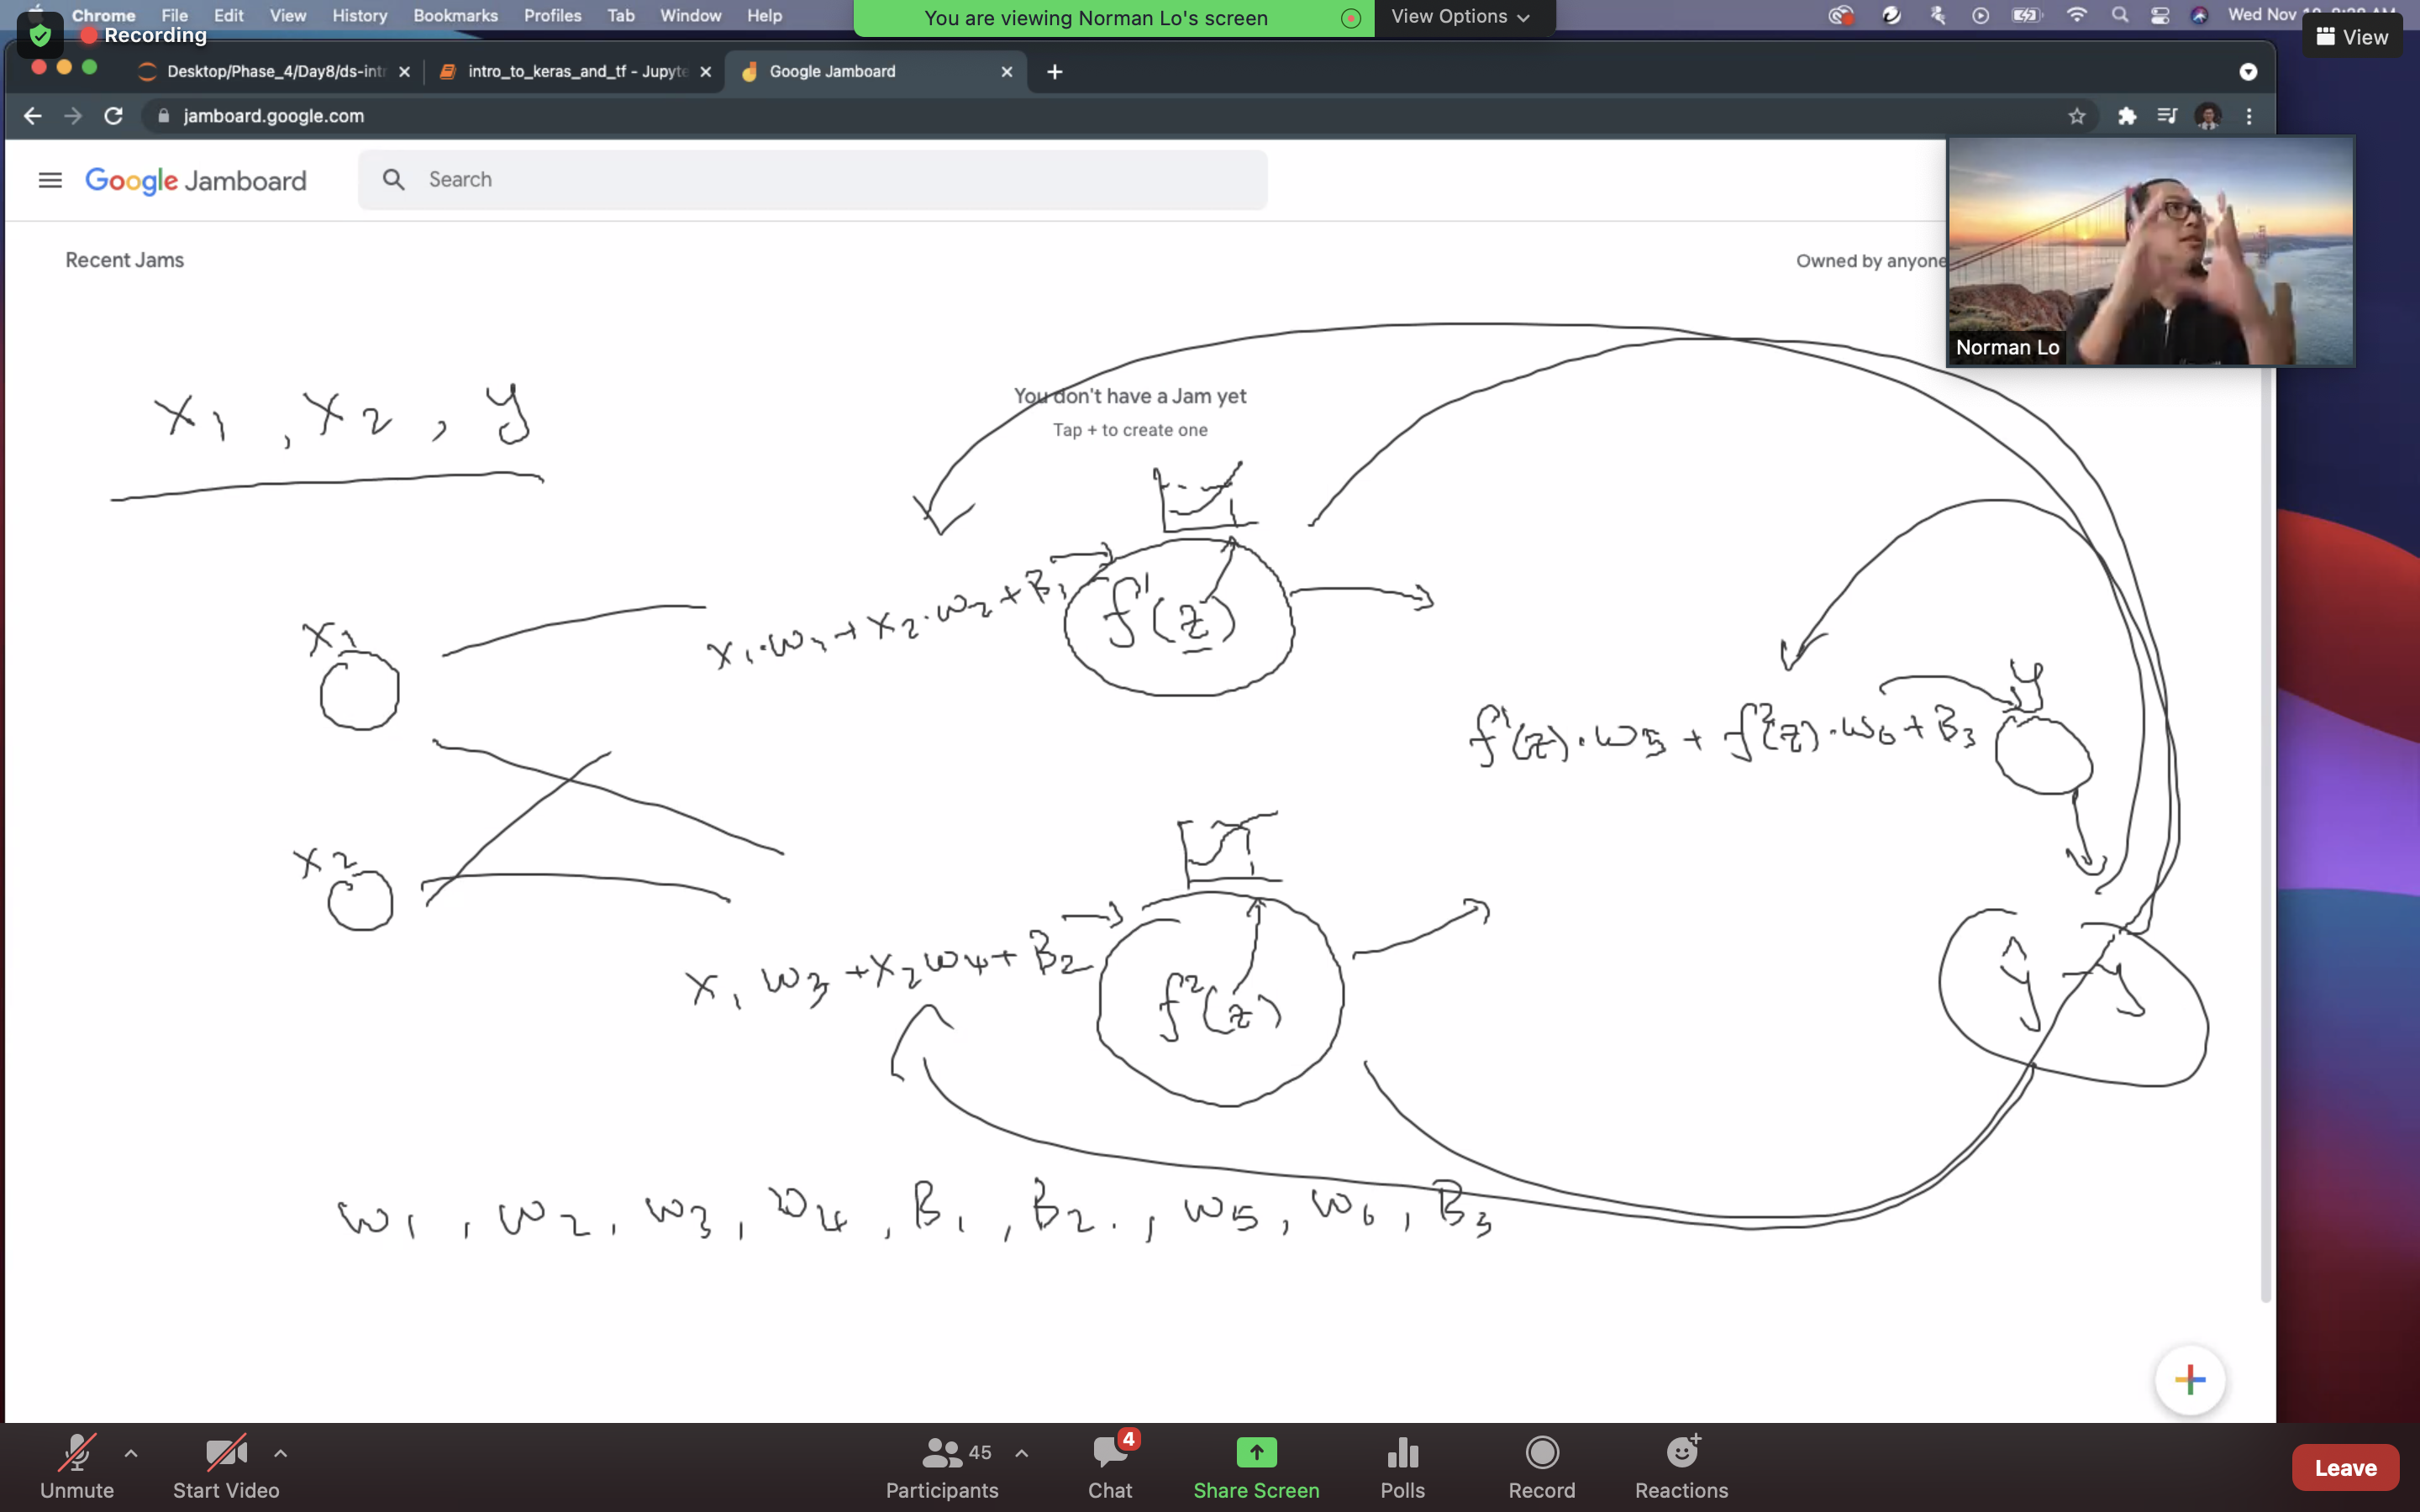 Chrome File Edit View History Bookmarks Profiles Tab Window Help
Wed Nov
Recording
You are viewing Norman Lo's screen
View Options
View
Desktop/Phase_4/Day8/ds-intr
intro_to_keras_and_tf - Jupyte
Google Jamboard
jamboard.google.com
Google Jamboard
Search
Recent Jams
Owned by anyone
Norman Lo
You don't have a Jam yet
Tap + to create one
x₁, x₂, y
x₁
x₁·w₁+x₂·w₂+B₁
f¹(z)
y
f¹(z)·w₅+f²(z)·w₆+B₃
x₂
x₁w₃+x₂w₄+B₂
f²(z)
ŷ-y
w₁, w₂, w₃, w₄, B₁, B₂., w₅, w₆, B₃
Unmute
Start Video
45
Participants
4
Chat
Share Screen
Polls
Record
Reactions
Leave